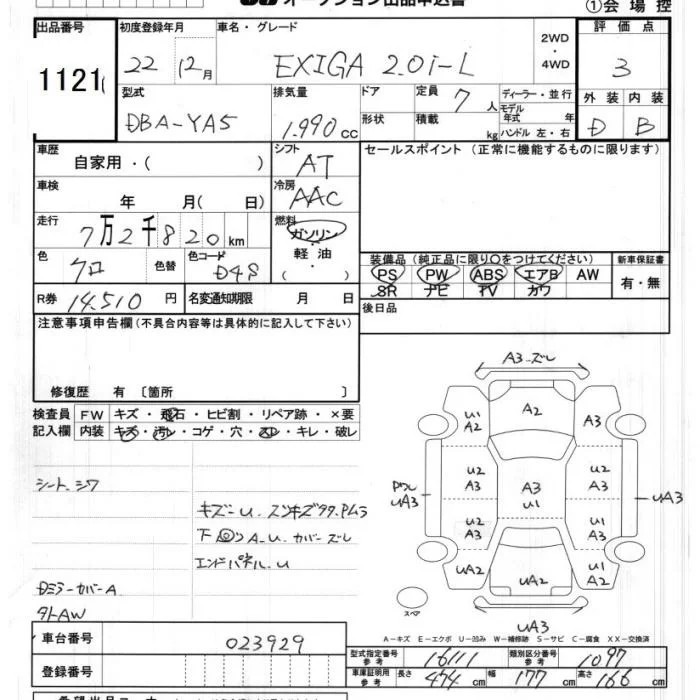 オークション出品申込書
①会場控
出品番号 初度登録年月 車名・グレード 評価点
1121
22 12月 EXIGA 2.0i-L 2WD・4WD 3
型式 排気量 ドア 定員 7人 ディーラー・並行 外装 内装
モデル年式 年
DBA-YA5 1.990cc 形状 積載 kg ハンドル 左・右 D B
車歴 自家用・( ) シフト AT セールスポイント(正常に機能するものに限ります)
車検 年 月( 日) 冷房 AAC
走行 7万2千820km 燃料 ガソリン・軽油・( )
色 クロ 色替 色コード D4S
装備品(純正品に限り○をつけてください) 新車保証書
PS PW ABS エアB AW 有・無
SR ナビ TV カワ
R券 14.510円 名変通知期限 月 日
後日品
注意事項申告欄(不具合内容等は具体的に記入して下さい)
修復歴 有 〔箇所 〕
検査員 FW キズ・飛石・ヒビ割・リペア跡・×要
記入欄 内装 キズ・汚レ・コゲ・穴・スレ・キレ・破レ
シート.シワ
エンドパネル.u
DミラーカバーA
外AW
A3-ズレ
u1 A2 A2 A3
u2 A3 u2 A3
A3 u1
uA3 uA3
u2 A3 u1 A3
uA2 uA2 u1 A2
スペア
uA3
A-キズ E-エクボ U-凹み W-補修跡 S-サビ C-腐食 XX-交換済
車台番号 023929
型式指定番号 参考 16111 類別区分番号 参考 1097
登録番号
車庫証明用 参考 長さ 474cm 幅 177cm 高さ 166cm